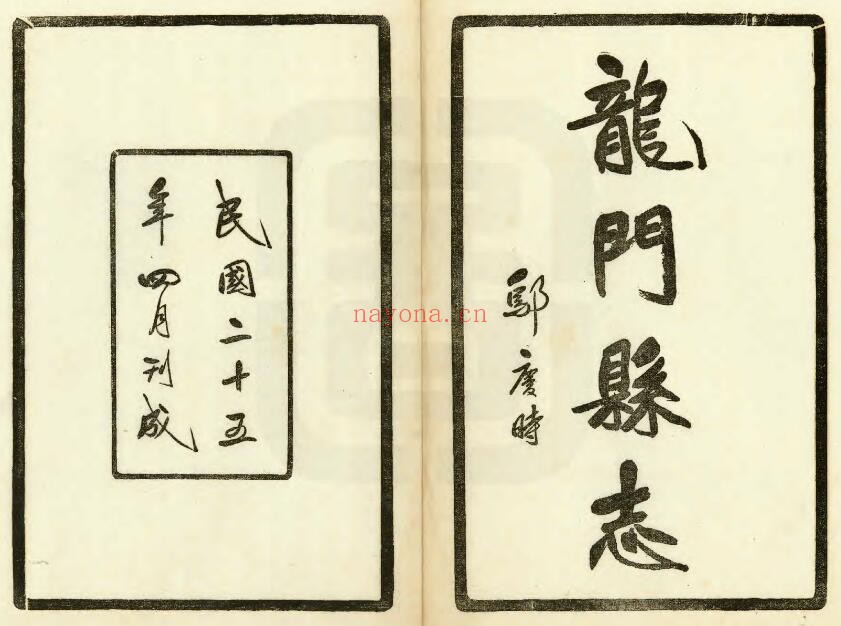 龍門縣志
鄔慶時
民國二十五
年四月刊成
nayona.cn